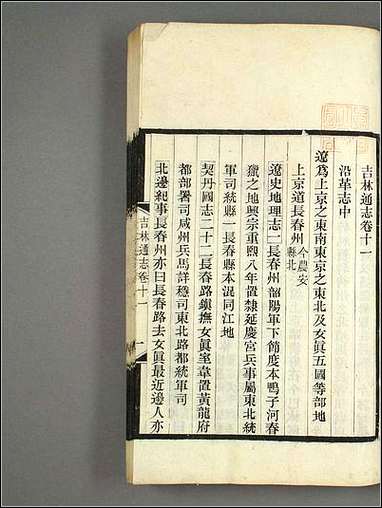 吉林通志卷十一
沿革志中
遼爲上京之東南東京之東北及女眞五國等部地
上京道長春州今農安縣北
遼史地理志一長春州韶陽軍下節度本鴨子河春
獵之地興宗重熙八年置隸延慶宮兵事屬東北統
軍司統縣一長春縣本混同江地
契丹國志二十二長春路鎭撫女眞室韋置黃龍府
都部署司咸州兵馬詳穩司東北路都統軍司
北邊紀事長春州亦曰長春路去女眞最近邊人亦
吉林通志卷十一 一